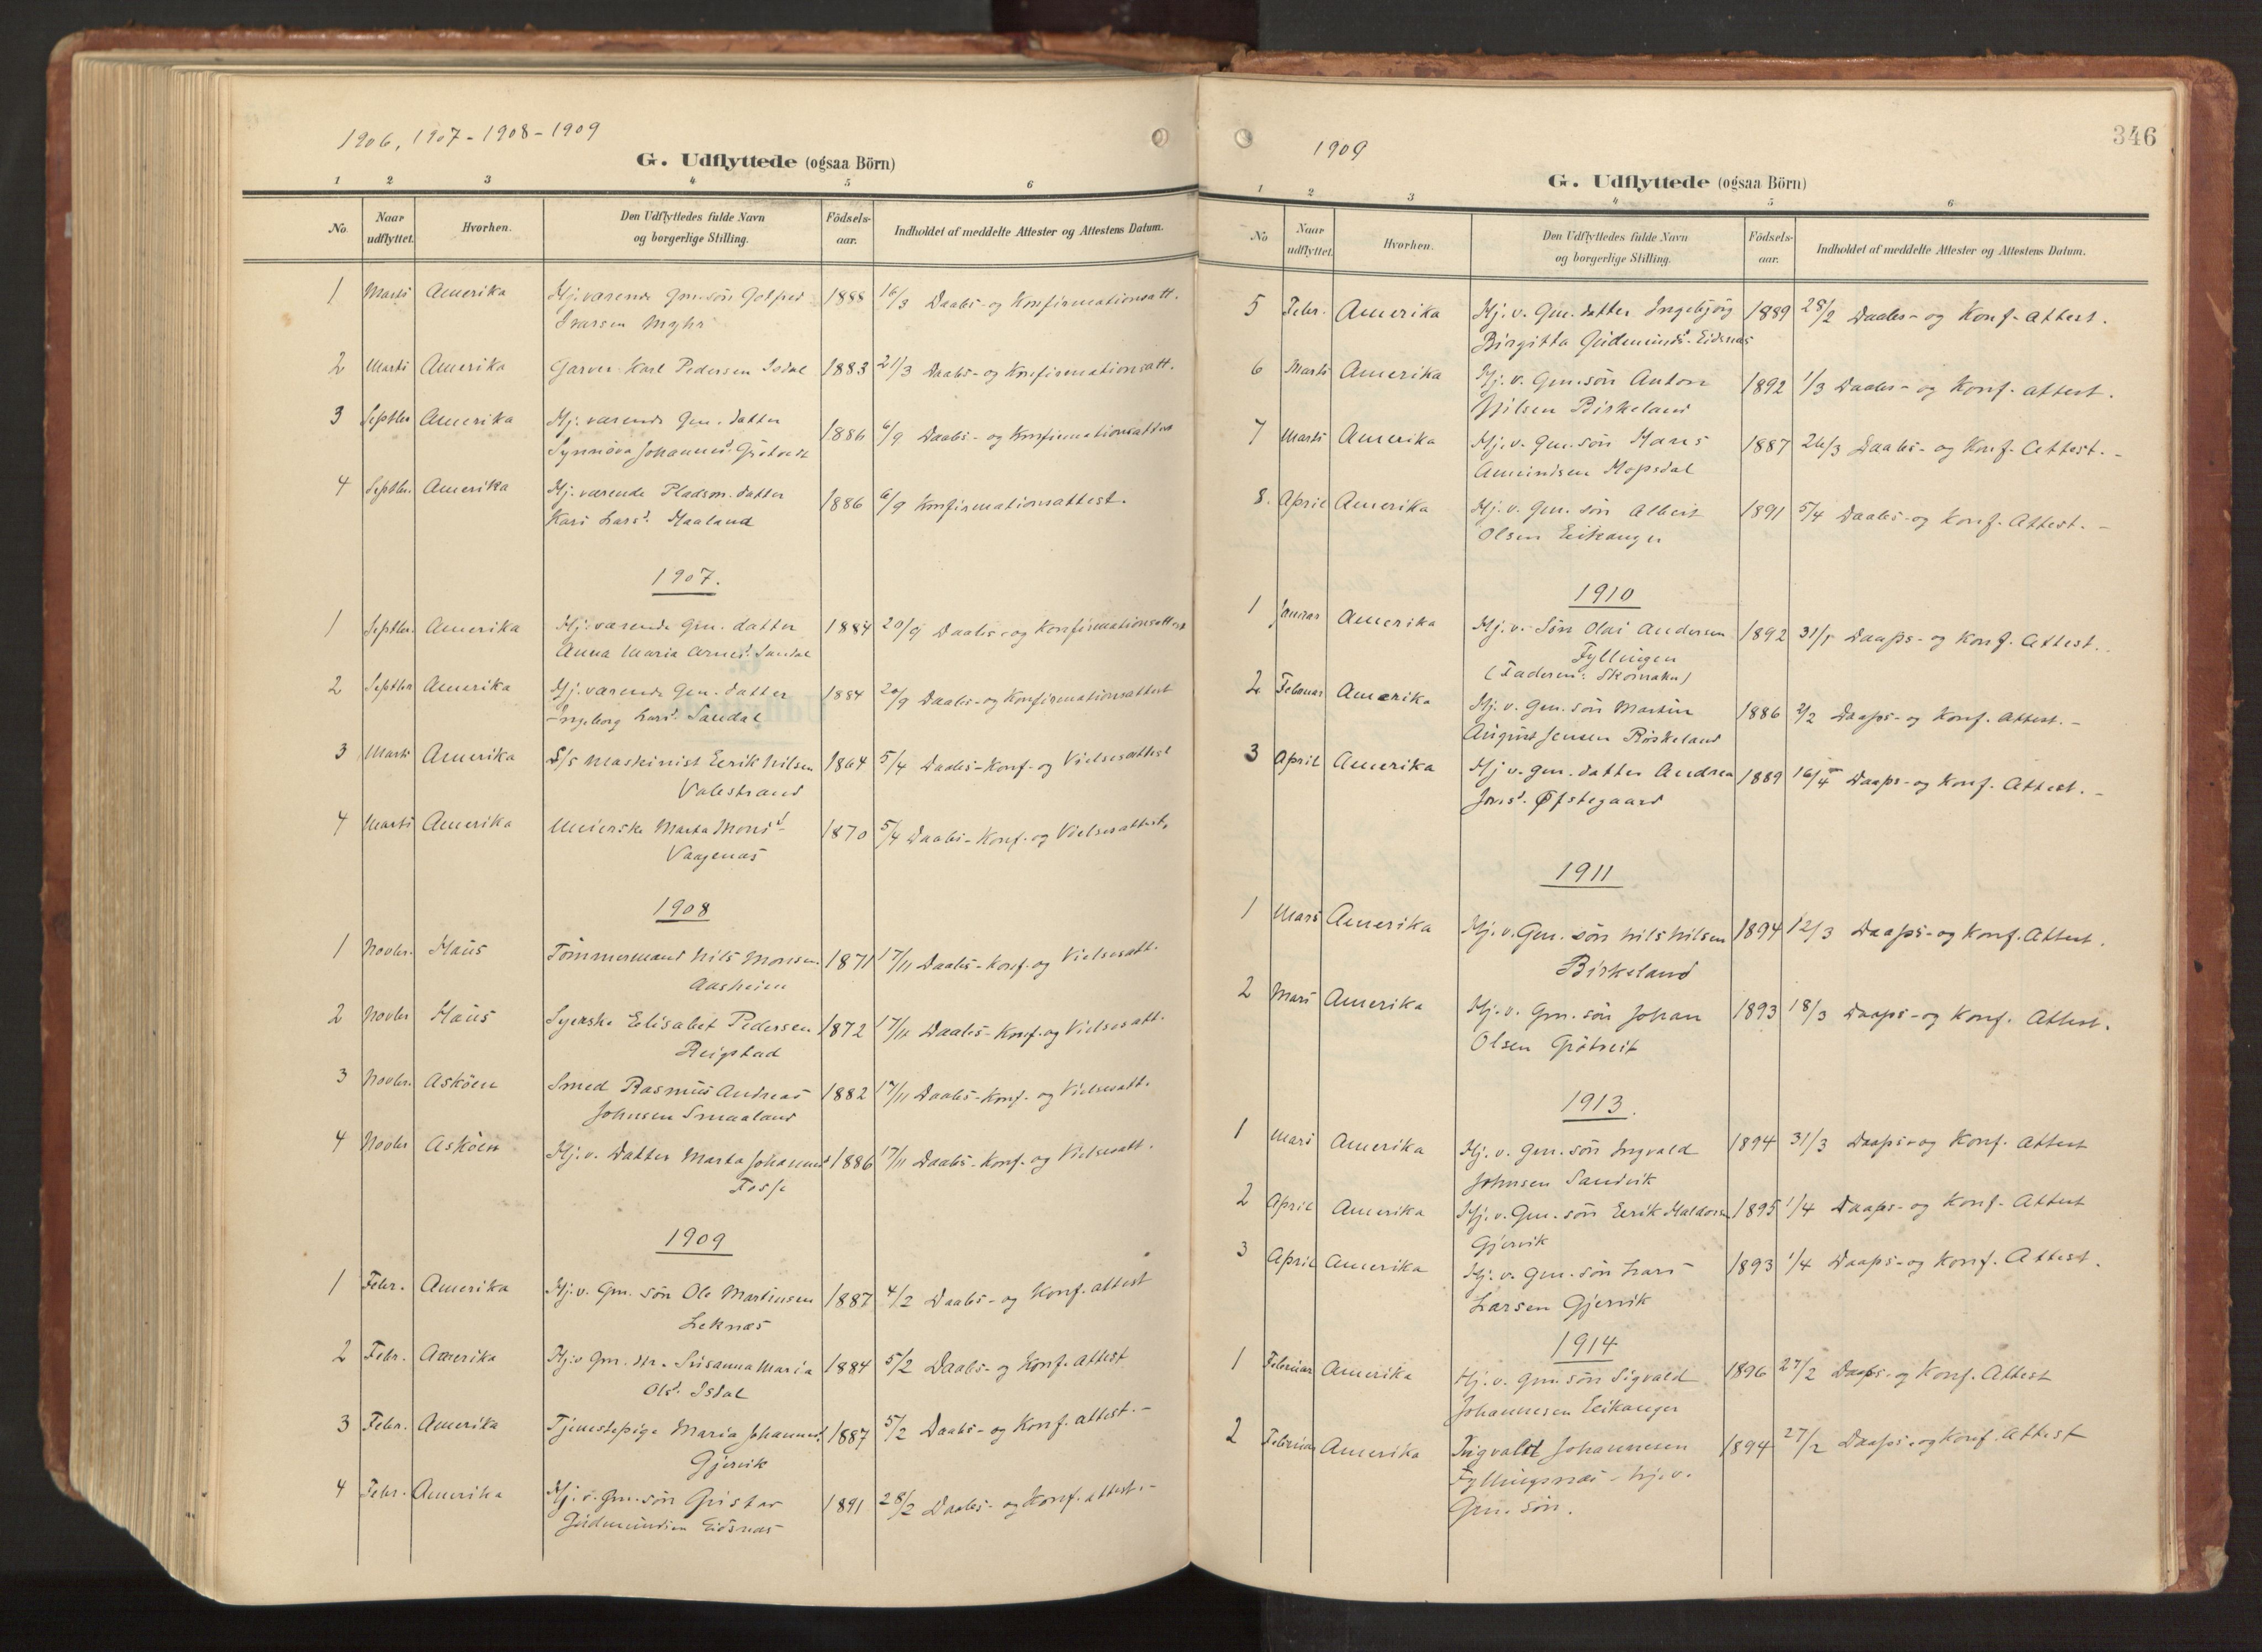 1906, 1907 - 1908 - 1909
G. Udflyttede (ogsaa Börn)
1 2 3 4 5 6
No. Naar udflyttet. Hvorhen. Den Udflyttedes fulde Navn og borgerlige Stilling. Födsels-aar. Indholdet af meddelte Attester og Attestens Datum.
1 Marts Amerika Hj. værende Gm. sön 1888 16/3 Daabs- og Konfirmationsatt.
Ivarsen Myhr
2 Marts Amerika Garver Karl Pedersen Isdal 1883 21/3 Daabs- og Konfirmationsatt.
3 Septbr Amerika Hj. værende Gm. datter 1886 6/9 Daabs- og Konfirmationsattest
Synnöva Johannesd.
4 Septbr. Amerika Hj. værende Pladsm. datter 1886 6/9 Konfirmationsattest.
Kari Larsd. Haaland
1907.
1 Septbr. Amerika Hj. værende Gm. datter 1884 20/9 Daabs- og Konfirmationsattest
Anna Maria Arnesd. Sandal
2 Septbr Amerika Hj. værende Gm. datter 1884 20/9 Daabs- og Konfirmationsattest
Ingeborg Larsd. Sandal
3 Marts Amerika S/s Maskinist Eerik Nilsen 1864 5/4 Daabs- Konf- og Vielsesattest
Valestrand
4 Marts Amerika Meierske Marta Monsd. 1870 5/4 Daabs- Konf. og Vielsesattest.
Vaagenæs
1908
1 Novbr. Haus Tömmermand Nils Monsen 1871 17/11 Daabs- Konf. og Vielsesatt.
Aasheim
2 Novbr Haus Syerske Elisabet Pedersen 1872 17/11 Daabs- Konf. og Vielsesatt.
Reigstad
3 Novbr. Asköen Smed Rasmus Andreas 1882 17/11 Daabs- Konf- og Vielsesatt.
Johnsen Smaaland
4 Novbr Asköen Hj. v. Datter Marta Johannesd 1886 17/11 Daabs- Konf. og Vielsesatt.
Fosse
1909
1 Febr. Amerika Hj. v. Gm. sön Ole Martinsen 1887 4/2 Daabs- og Konf. attest
Leknæs
2 Febr. Amerika Hj. v Gm. dtr. Susanna Maria 1884 5/2 Daabs- og Konf. attest
Olsd. Isdal
3 Febr. Amerika Tjenestepige Maria Johannesd. 1887 5/2 Daabs- og Konf. attest.-
Gjervik
4 Febr. Amerika Hj. v. Gm. sön Gustav 1891 28/2 Daabs- og Konf. attest.-
Gudmundsen Eidsnæs
346
1909
G. Udflyttede (ogsaa Börn)
1 2 3 4 5 6
No Naar udflyttet. Hvorhen. Den Udflyttedes fulde Navn og borgerlige Stilling. Födsels-aar. Indholdet af meddelte Attester og Attestens Datum.
5 Febr. Amerika Hj. v. Gm. datter Ingebjörg 1889 28/2 Daabs- og Konf- attest.
Birgitta Gudmundsd. Eidsnæs
6 Marts Amerika Hj. v. Gm. sön Anton 1892 1/3 Daabs- og Konf. attest.
Nilsen Birkeland
7 Marts Amerika Hj. v. Gm. sön Hans 1887 26/3 Daabs- og Konf. Attest.-
Amundsen Hopsdal
8. April Amerika Hj. v. Gm. sön Albert 1891 5/4 Daabs- og Konf. Attest.-
Olsen Eikanger
1910
1 Januar Amerika Hj. v. Sön Olai Andersen 1892 31/1 Daaps- og Konf. Attest.
Fyllingen
(Faderen: Skomaker)
2 Februar Amerika Hj. v. Gm. sön Martin 1886 2/2 Daaps- og Konf. Attest.-
August Jensen Röskeland
3 April Amerika Hj v. Gm. datter Andrea 1889 16/4 Daaps- og Konf. Attest.-
Jonsd. Øfstegaard
1911
1 Mars Amerika Hj. v. Gm. sön Nils Nilsen 1894 12/3 Daaps- og Konf. Attest.
Birkeland
2 Mars Amerika Hj. v. Gm. sön Johan 1893 18/3 Daaps- og Konf. Attest.
Olsen Grötveit
1913.
1 Mars Amerika Hj. v. Gm. sön Ingvald 1894 31/3 Daaps- og Konf. Attest
Johnsen Sandvik
2 April Amerika Hj. v. Gm. sön Eerik Haldorsen 1895 1/4 Daaps- og Konf- Attest
Gjervik
3 April Amerika Hj. v. Gm. sön Lars 1893 1/4 Daaps- og Konf. Attest.
Larsen Gjervik
1914
1 Februar Amerika Hj. v. Gm. sön Sigvald 1896 27/2 Daaps- og Konf. Attest
Johannesen Eeikanger
2 Februar Amerika Ingvald Johannesen 1894 27/2 Daaps- og Konf. Attest
Fyllingsnæs - hj. v.
Gm. sön.